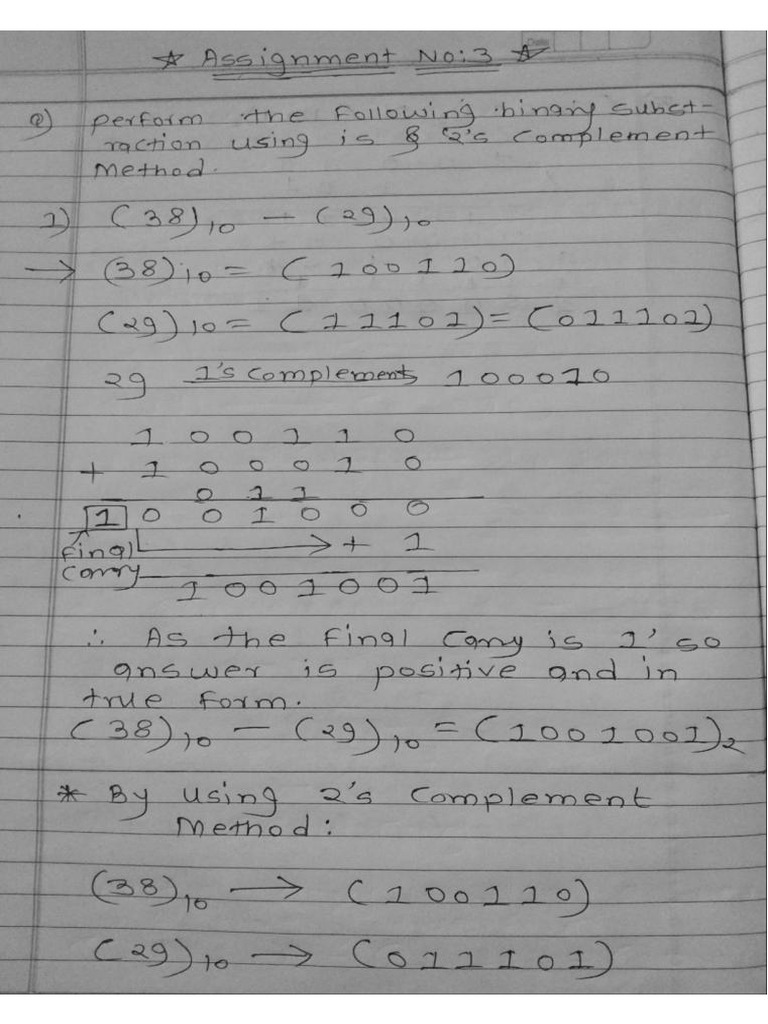 ☆ Assignment No:3 ☆
Q) perform the following binary subst-
raction using is & 2's complement
Method.
1) (38)10 - (29)10
→ (38)10 = (100110)
(29)10 = (11101) = (011101)
29 1's complement, 100010
1 0 0 1 1 0
+ 1 0 0 0 1 0
0 1 1
1 0 0 1 0 0 0
Final → + 1
carry 1001001
∴ As the final carry is 1' so
answer is positive and in
true form.
(38)10 - (29)10 = (1001001)2
* By using 2's complement
Method:
(38)10 → (100110)
(29)10 → (011101)